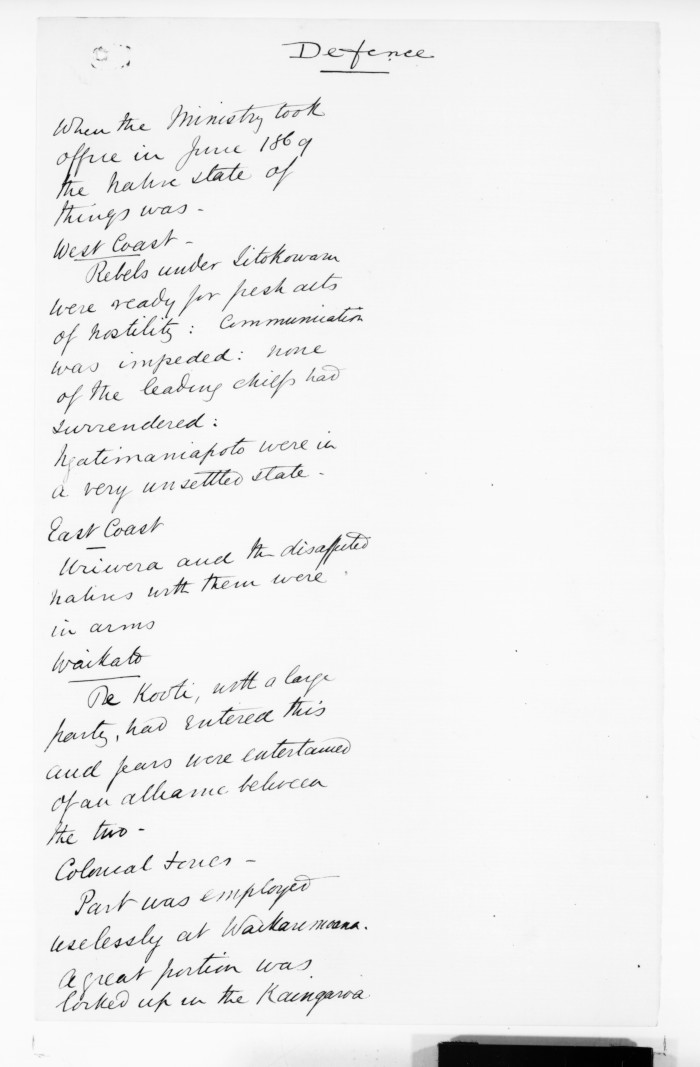 Defence
When the Ministry took
office in June 1869
the Native state of
things was -
West Coast -
Rebels under Titokowaru
were ready for fresh acts
of hostility: Communication
was impeded: none
of the leading chiefs had
surrendered:
Ngatimaniapoto were in
a very unsettled state -
East Coast
Uriwera and the disaffected
natives with them were
in arms
Waikato
Te Kooti, with a large
party, had entered this
and fears were entertained
of an alliance between
the two -
Colonial Forces -
Part was employed
uselessly at Waikaremoana.
A great portion was
locked up in the Kaingaroa